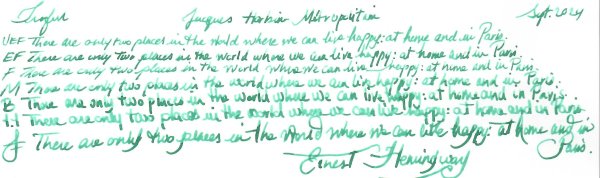 Jacques Herbin Metropolitan Sept. 2024
UEF There are only two places in the world where we can live happy: at home and in Paris.
EF There are only two places in the world where we can live happy: at home and in Paris.
F There are only two places in the world where we can live happy: at home and in Paris.
M There are only two places in the world where we can live happy: at home and in Paris.
B There are only two places in the world where we can live happy: at home and in Paris.
1.1 There are only two places in the world where we can live happy: at home and in Paris.
There are only two places in the world where we can live happy: at home and in
Paris.
Ernest Hemingway